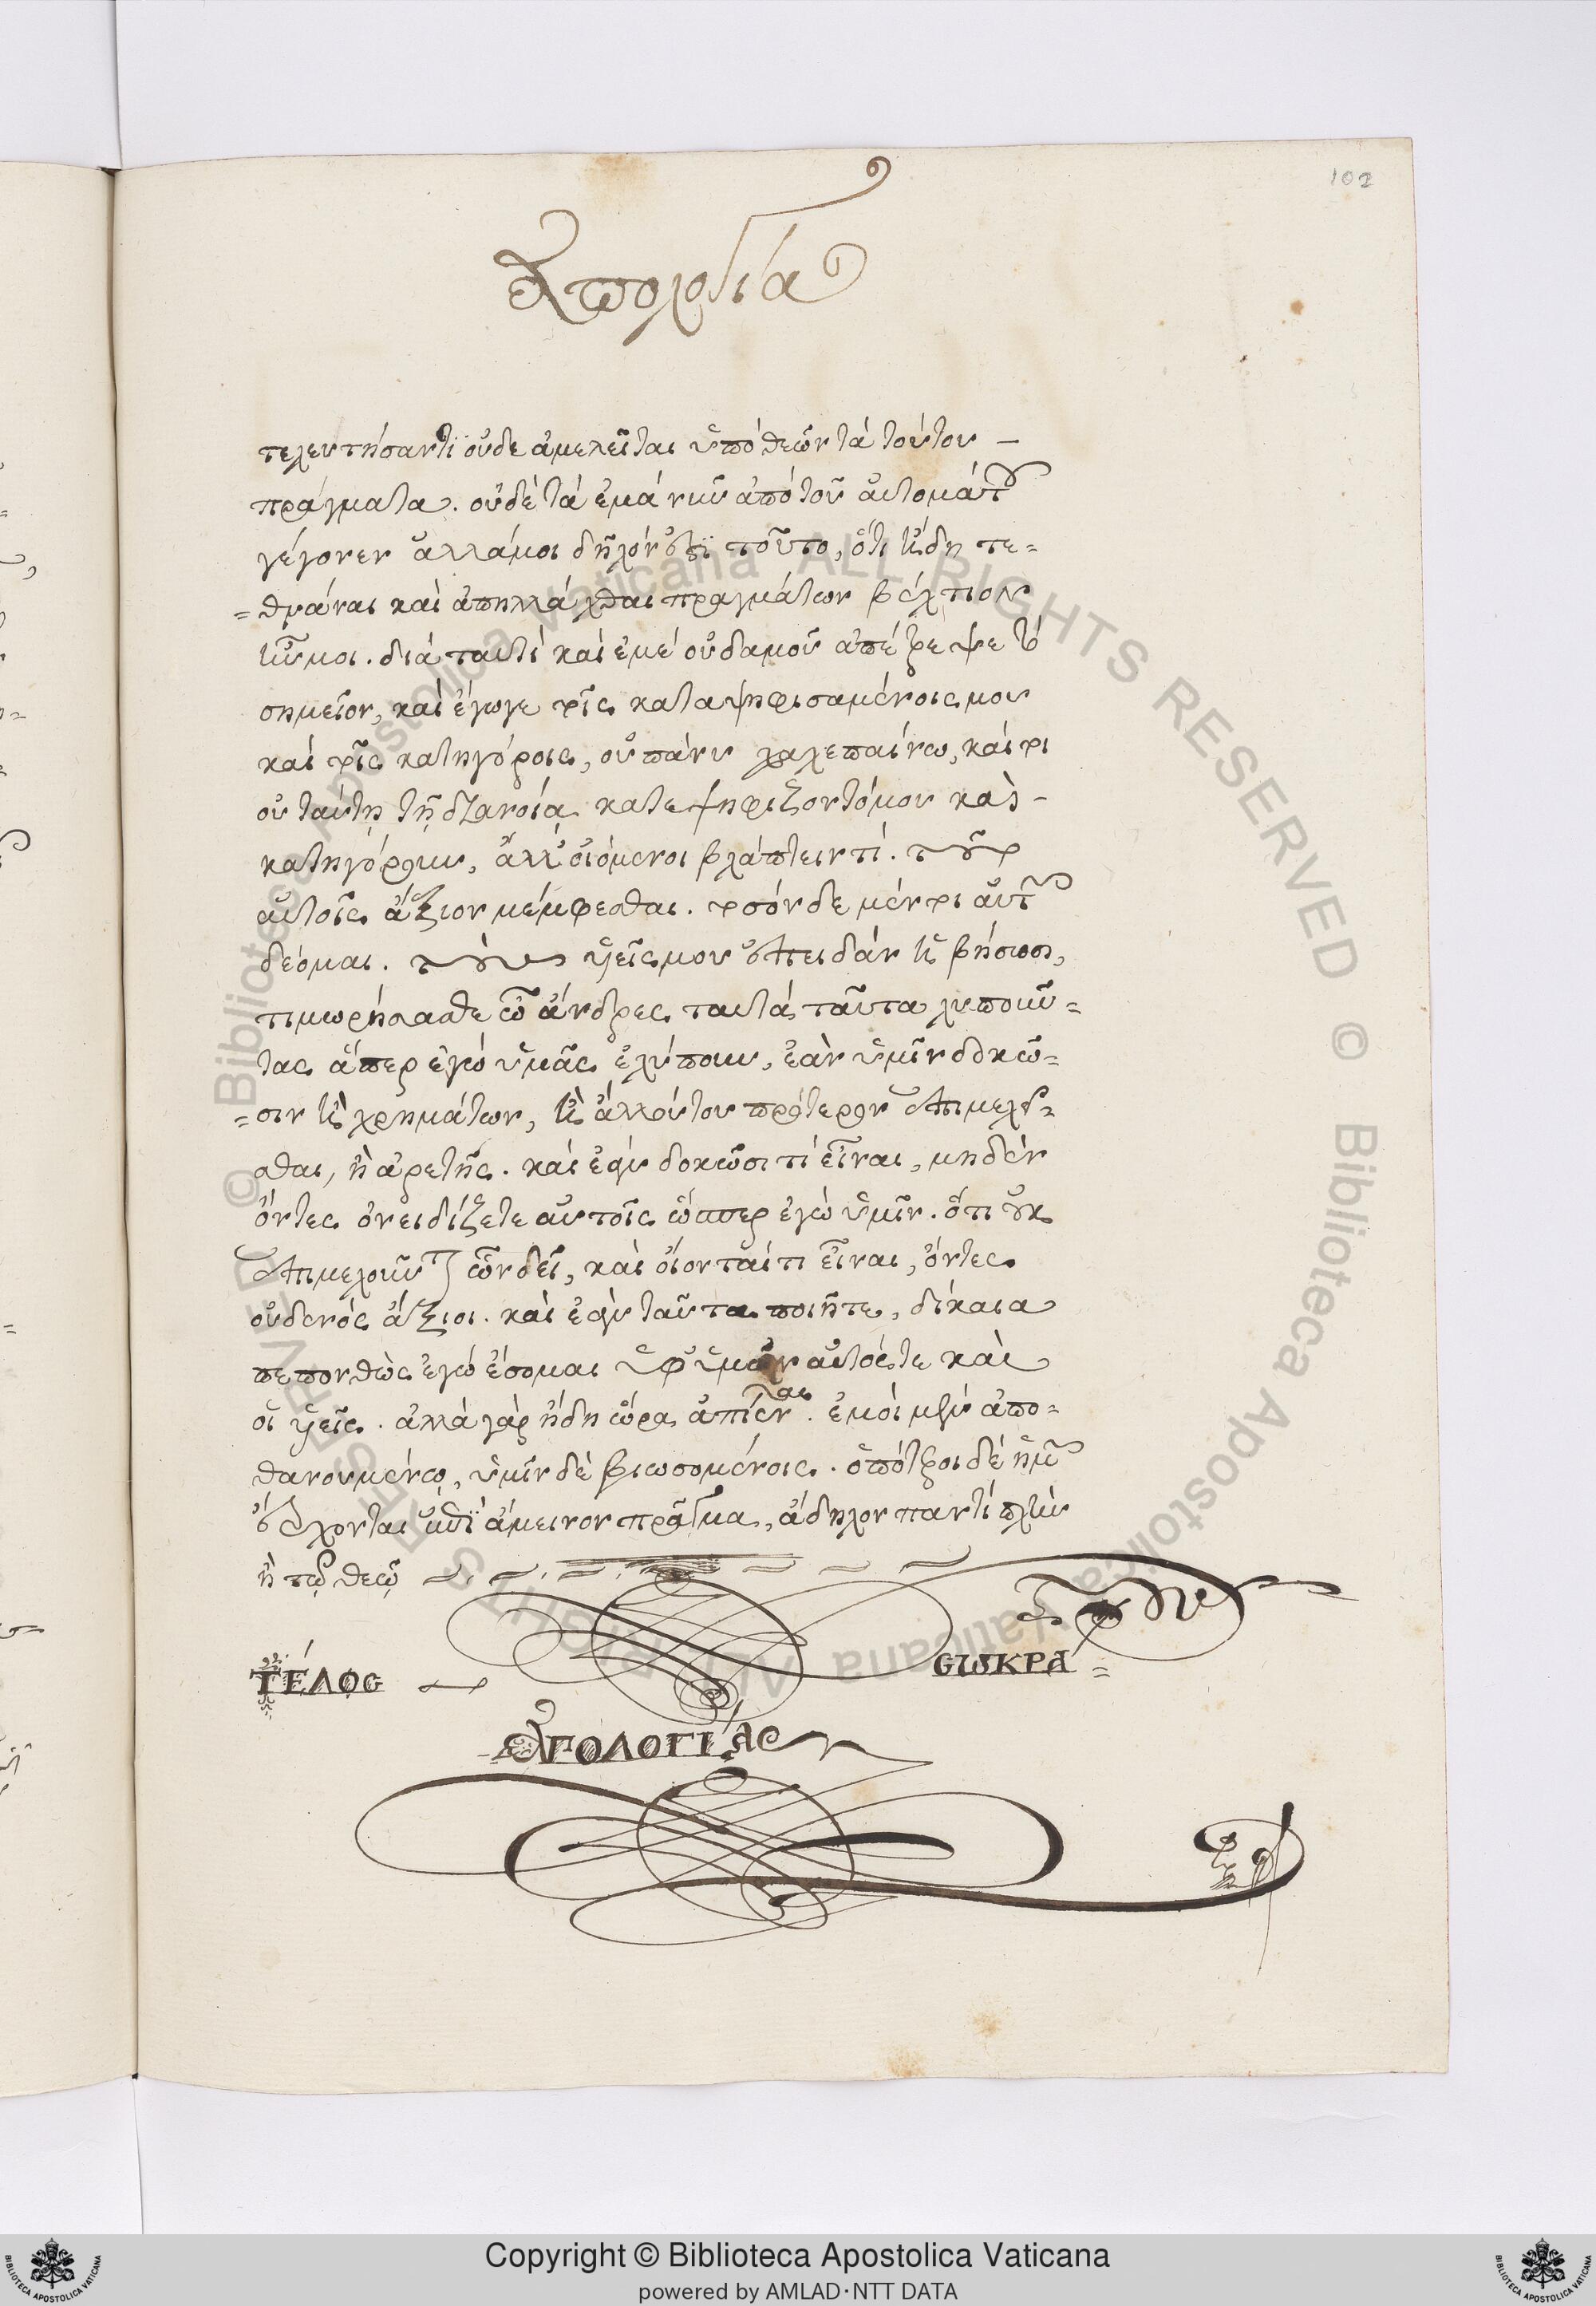 102
Ἀπολογία
τελευτήσαντι οὐδε ἀμελεῖται ὑπὸ θεῶν τὰ τούτου –
πράγματα. οὐδὲ τὰ ἐμὰ νῦν ἀπὸ τοῦ αὐτομάτου
γέγονεν ἀλλά μοι δῆλόν ἐστι τοῦτο, ὅτι ἤδη τε=
=θνάναι καὶ ἀπηλλάχθαι πραγμάτων βέλτιον
ἦν μοι. διὰ ταυτὶ καὶ ἐμὲ οὐδαμοῦ ἀπέτρεψε τὸ
σημεῖον, καὶ ἔγωγε τοῖς καταψηφισαμένοις μου
καὶ τοῖς κατηγόροις, οὐ πάνυ χαλεπαίνω, καί τοι
οὐ ταύτῃ τῇ διανοίᾳ κατεψηφίζοντό μου καὶ –
κατηγόρουν, ἀλλ' οἰόμενοι βλάπτειν τί. τοῦτ
αὐτοῖς ἄξιον μέμφεσθαι. τοσόνδε μέντοι αὐτῶν
δέομαι. τοὺς ὑεῖς μου ἐπειδὰν ἡβήσωσι,
τιμωρήσασθε ὦ ἄνδρες ταυτὰ ταῦτα λυποῦν=
τας ἅπερ ἐγὼ ὑμᾶς ἐλύπουν, ἐὰν ὑμῖν δοκῶ=
=σιν ἢ χρημάτων, ἢ ἄλλου του πρότερον ἐπιμελεῖ=
σθαι, ἢ ἀρετῆς. καὶ ἐὰν δοκῶσι τί εἶναι, μηδὲν
ὄντες ὀνειδίζετε αὐτοῖς ὥσπερ ἐγὼ ὑμῖν. ὅτι οὐκ
ἐπιμελοῦνται ὧν δεῖ, καὶ οἴονταί τι εἶναι, ὄντες
οὐδενὸς ἄξιοι. καὶ ἐὰν ταῦτα ποιῆτε, δίκαια
πεπονθὼς ἐγὼ ἔσομαι ὑφ' ὑμῶν αὐτός τε καὶ
οἱ ὑεῖς. ἀλλὰ γὰρ ἤδη ὥρα ἀπιέναι. ἐμοὶ μὲν ἀπο=
θανουμένῳ, ὑμῖν δὲ βιωσομένοις. ὁπότεροι δὲ ἡμῶν
ἔρχονται ἐπὶ ἄμεινον πρᾶγμα, ἄδηλον παντὶ πλὴν
ἢ τῷ θεῷ
ΤΈΛΟΣ
ΣΩΚΡΑ=
ἈΠΟΛΟΓΊΑΣ